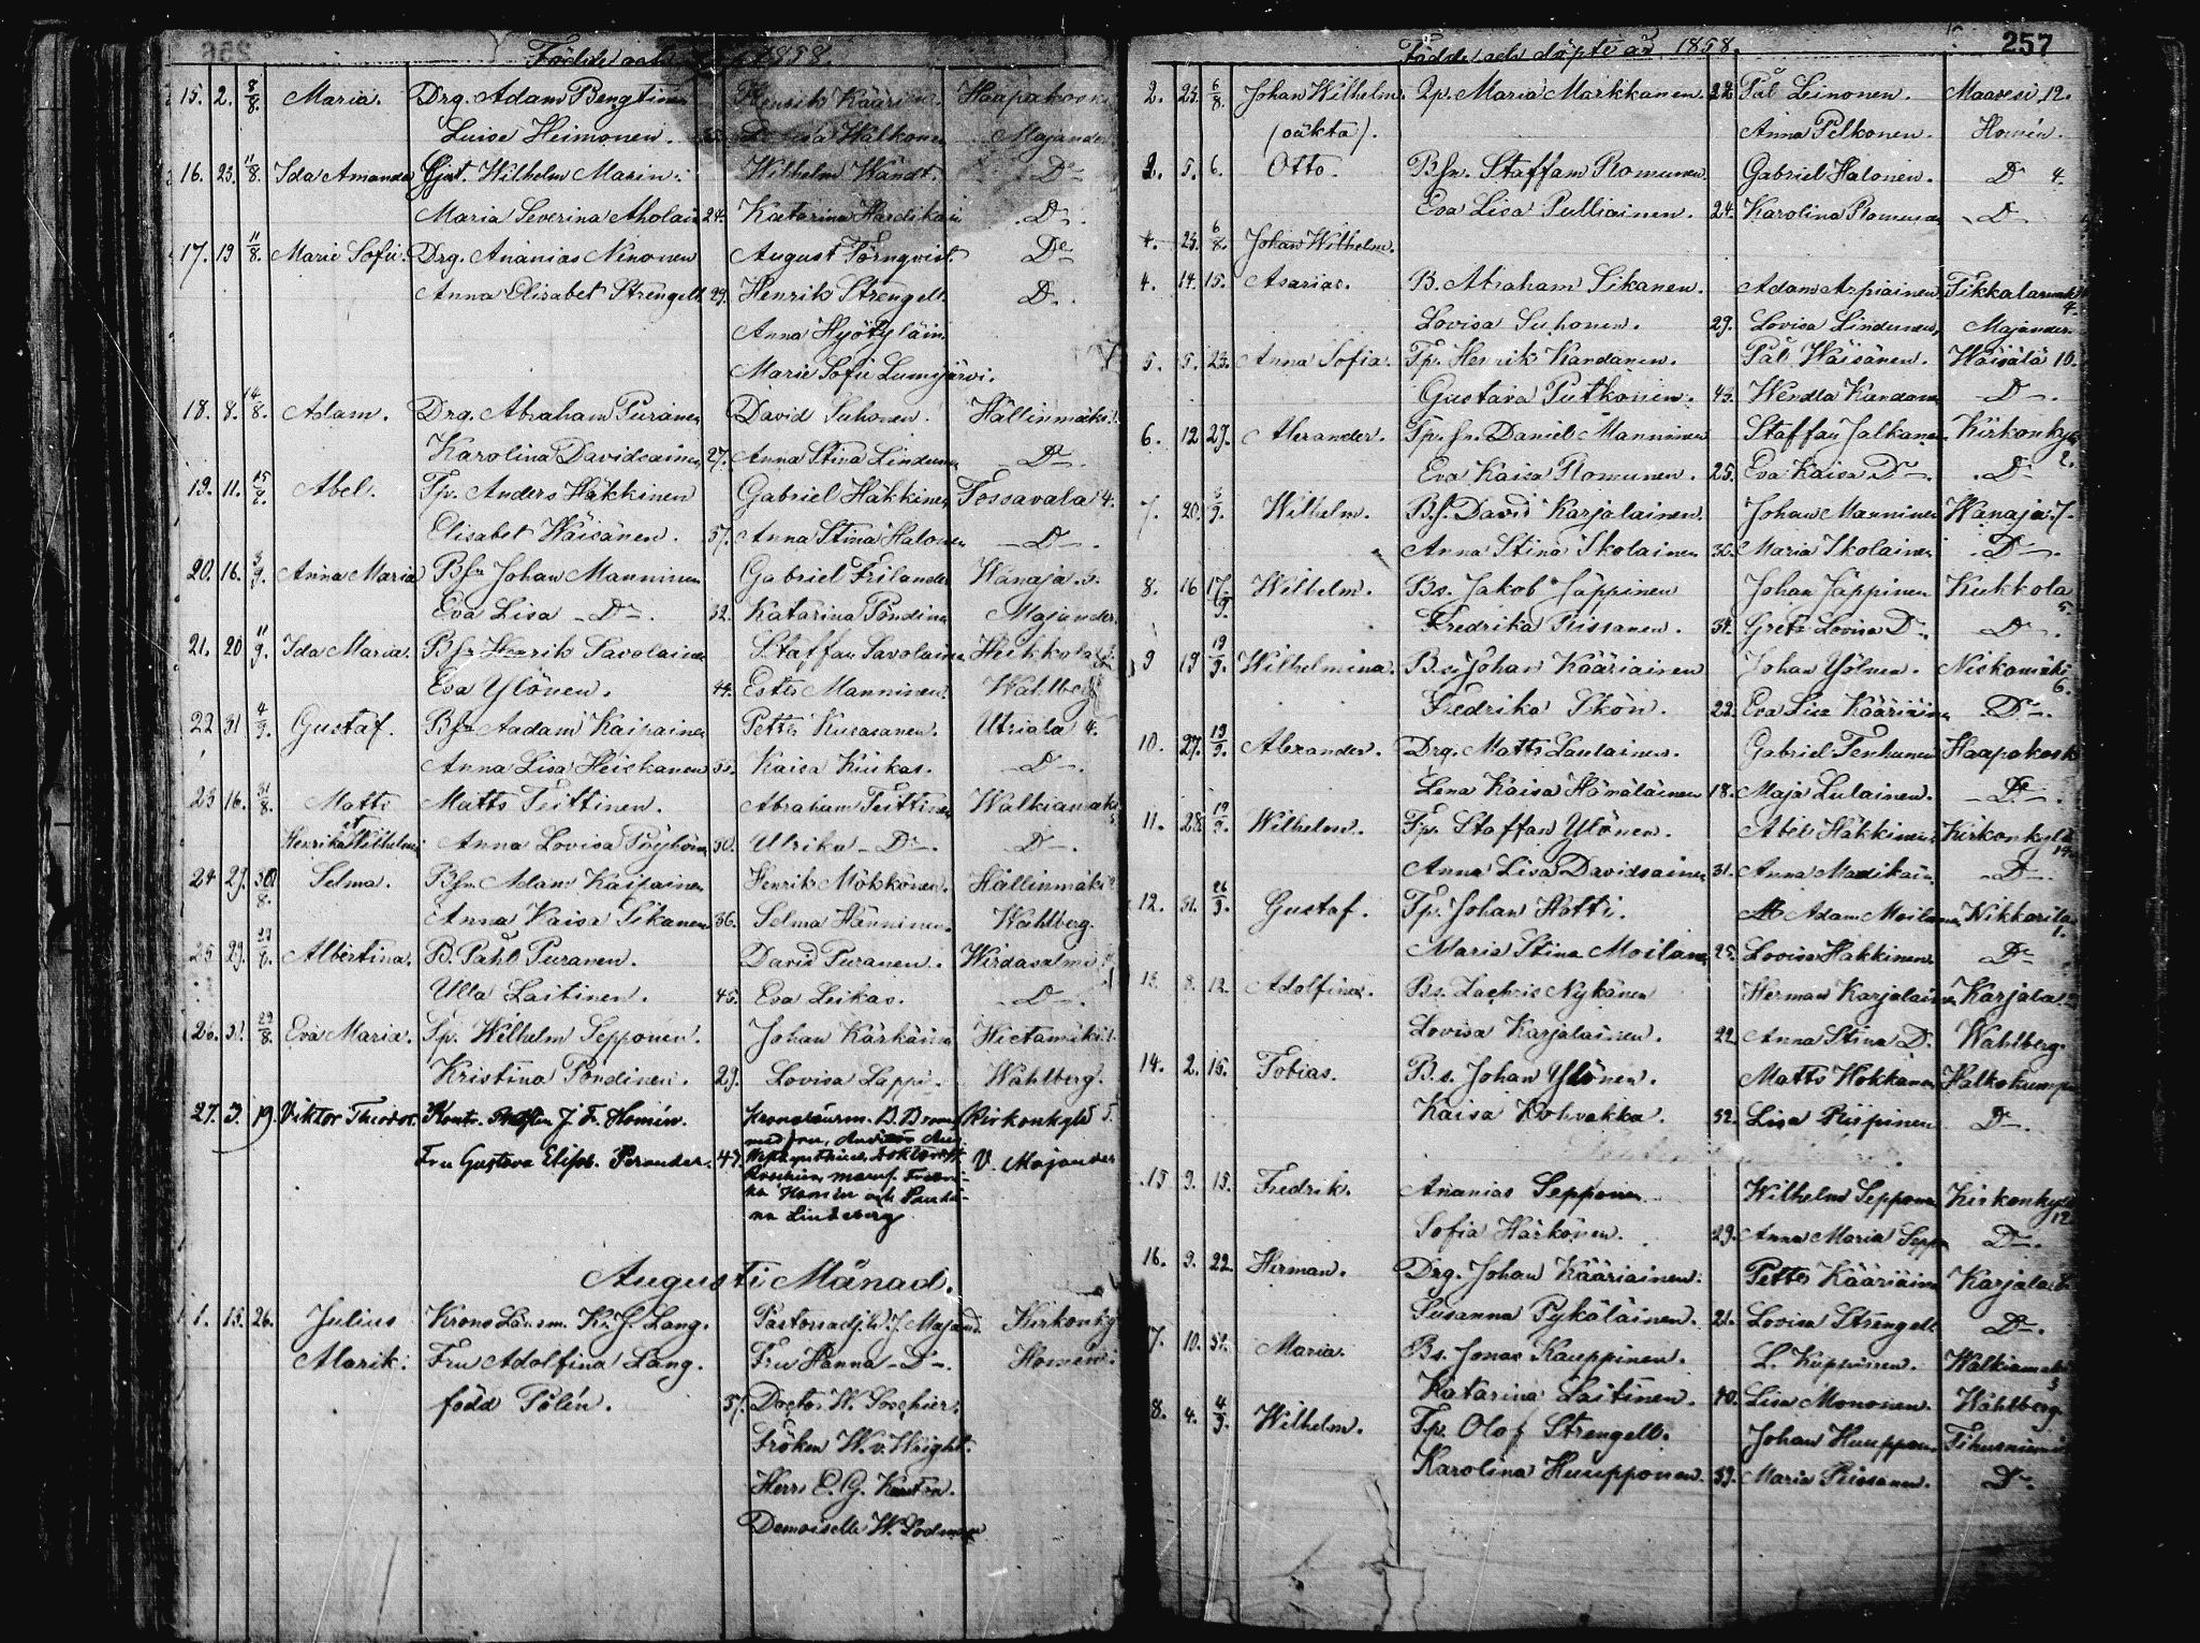 Födde och 1858.
15. 2. 8/8. Maria. Drg. Adam Bengtinen Henrik Kääriä. Haapakoski
Luise Heimonen. Wälkonen Majander
16. 23. 11/8. Ida Amanda Gjut. Wilhelm Marin. Wilhelm Wändt. D:o
Maria Severina Aholain 24. Katarina Hardikain D:o
17. 19 11/8. Marie Sofie. Drg. Ananias Ninonen August Törnqvist. D:o
Anna Elisabet Strengell. 29. Henrik Strengell. D:o
Anna Hyötyläin.
Marie Sofie Lumijärvi.
18. 8. 14/8. Adam. Drg. Abraham Puranen David Suhonen. Hällinmäki.
Karolina Davidsainen 27. Anna Stina Lindunen D:o
19. 11. 15/8. Abel. Tp. Anders Häkkinen Gabriel Häkkinen Tossavala 4.
Elisabet Wäisänen. 37. Anna Stina Halonen D:o
20. 16. 5/9. Anna Maria Bfn Johan Manninen Gabriel Frilander Wanaja. 3.
Eva Lisa D:o 32. Katarina Pöndine Majander.
21. 20 11/9. Ida Maria. Bfn Henrik Savolainen Staffan Savolaine Heikkola
Eva Ylönen. 44. Ester Manninen. Wahlberg
22 31 4/9. Gustaf. Bfn Aadam Kaipainen Petter Kurasanen. Utriala 4.
Anna Lisa Heiskanen 35. Kaisa Kiukas. D:o
23 16. 31/8. Matts Matts Teittinen. Abraham Teittinen Walkiamäki
et Henrika Wilhelmi Anna Lovisa Pöyhöin 30. Ulrika D:o D:o
24 27. 30/8. Selma. Bfn Adam Kaipainen Henrik Mökkönen. Hällinmäki
Anna Kaisa Sikanen 36. Selma Hänninen. Wahlberg.
25 29. 29/8. Albertina. B. Påhl Puranen. David Puranen. Wirdasalmi
Ulla Laitinen. 45. Eva Leikas. D:o
26. 31. 29/8. Eva Maria. Sp. Wilhelm Sepponen. Johan Kärkäinen Hietamäki.
Kristina Pöndinen. 29. Lovisa Lappi. Wahlberg.
27. 3. 19. Viktor Theodor. Kontr. J. F. Homén. Kronolänsm. B. Kirkonkylä 5.
med fru,
Fru Gustava Elisab. Perander. 43. V. Majander
Homén och
na Lindeberg
Augusti Månad.
1. 15. 26. Julius Krono Länsm. K. J. Lang. Pastorsadj. W. J. Majand. Kirkonky
Alarik. Fru Adolfina Lang. Fru Hanna D:o Homén.
född Polén. 37. Doctor W. Soschier.
Fröken W. v. Wright.
Herr E. G. Karstén.
Demoiselle W. Lodman
Födde och döpte år 1858. 257
2. 25. 6/8. Johan Wilhelm. Qp. Maria Markkanen. 22 Pål Leinonen. Maavesi 12.
(oäkta). Anna Pelkonen. Homén.
2. 5. 6. Otto. Bfn. Staffan Romunen. Gabriel Halonen. D:o 4.
Eva Lisa Pulliainen. 24. Karolina Romunen D:o
4. 25. 6/8. Johan Wilhelm.
4. 14. 15. Asarias. B. Abraham Sikanen. Adam Arpiainen Tikkalanmäki 4.
Lovisa Suhonen. 29. Lovisa Lindunen, Majander.
5. 5. 23. Anna Sofia. Tp. Henrik Kandanen. Pål Wäisänen. Wäisälä 10.
Gustava Putkonen. 43. Wendla Kandanen D:o
6. 12 29. Alexander. Tp. fn. Daniel Manninen Staffan Jalkanen. Kirkonkyl 2.
Eva Kaisa Romunen. 25. Eva Kaisa D:o D:o
7. 20. 5/9. Wilhelm. B.f. David Karjalainen. Johan Manninen Wanaja 7.
Anna Stina Ikolainen 36. Maria Ikolainen D:o
8. 16 17/9. Wilhelm. Bs. Jakob Jäppinen Johan Jäppinen Kukkola 5.
Fredrika Rissanen. 34. Greta Lovisa D:o D:o
9 19 19/9. Wilhelmina. B.s. Johan Kääriainen Johan Yölnen. Niskamäki 6.
Fredrika Ikön. 22. Eva Lisa Kääriäinen D:o
10. 27. 19/9. Alexander. Drg. Matts Laulainen. Gabriel Tenhunen Haapakoski
Lena Kaisa Hämäläinen 18. Maja Lulainen. D:o
11. 28 19/9. Wilhelm. Tp. Staffan Ylönen. Abel Häkkinen Kirkonkylä 14.
Anna Lisa Davidsainen 31. Anna Madikain. D:o
12. 31. 26/9. Gustaf. Tp. Johan Hotti. Adam Moilanen Nikkarila 1.
Maria Stina Moilanen 25. Lovisa Hakkinen D:o
13. 8. 12. Adolfina. Bs. Zachris Nykänen Herman Karjalainen Karjala
Lovisa Karjalainen. 22 Anna Stina D:o Wahlberg.
14. 2. 15. Tobias. B.s. Johan Ylönen. Matts Hokkanen Halkokumpu
Kaisa Kohvakka. 32. Lisa Piispinen D:o
15 9. 15. Fredrik. Ananias Sepponen Wilhelm Sepponen Kirkonkylä 12.
Sofia Härkönen. 29. Anna Maria Seppo D:o
16. 9. 22. Herman. Drg. Johan Kääriainen. Petter Kääriäinen Karjala
Susanna Pykäläinen. 21. Lovisa Strengell D:o
17. 10. 31. Maria. Bs. Jonas Kauppinen. L. Kuppinen. Walkiamäki 3
Katarina Laitinen. 40. Lisa Mononen. Wahlberg.
18. 4. 4/9. Wilhelm. Tp. Olof Strengell. Johan Huupponen Tihusniemi
Karolina Huupponen. 39. Maria Riissanen. D:o